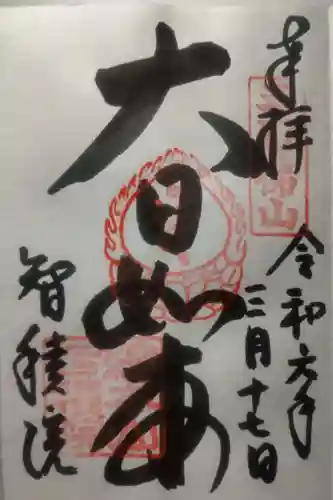 奉拝
令和六年
三月十七日
大日如来
智積院